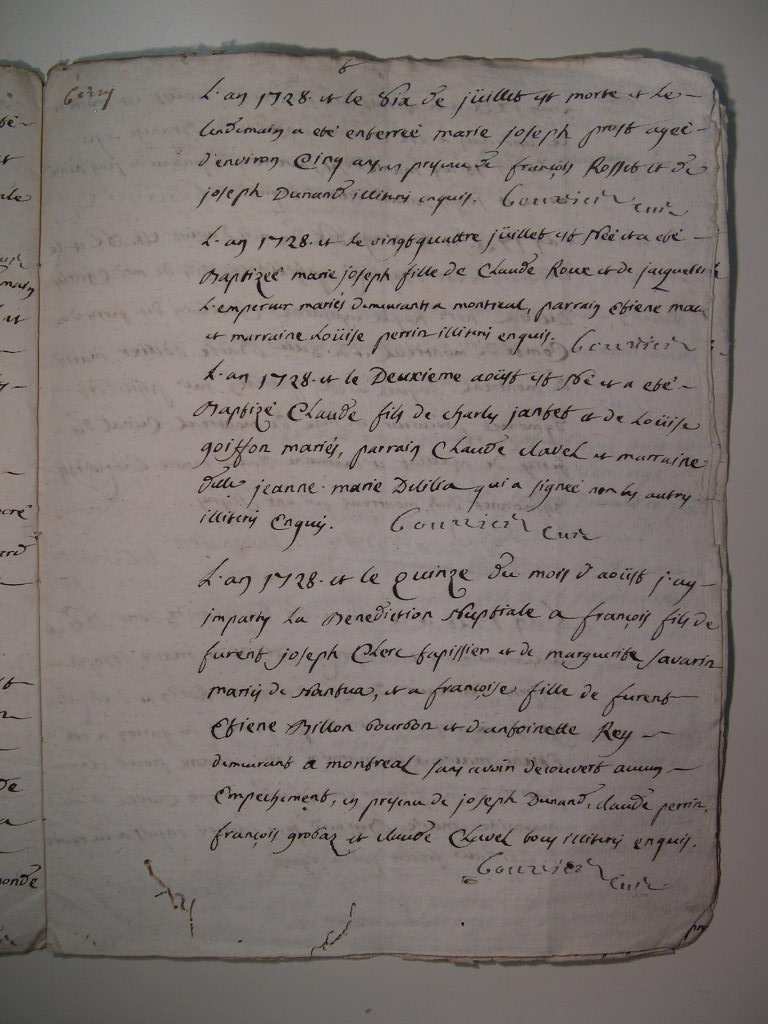 L'an 1728. et le dix de jüillet est morte et le
lendemain a eté enterreé marie joseph prost ageé
d'environ Cinq ans, en presence de françois Rosset et de
joseph Dunand illiterés enquis. Gouvrier Curé
L'an 1728. et le vingtquattre jüillet est Neé et a eté
Baptizeé marie joseph fille de Claude Roux et de jacquette
L'empereur mariés demeurants a montreal, parrain Etiene
et marraine Loüise perrin illiterés enquis. Gouvrier
L'an 1728. et le Deuxieme aoüst est Né et a eté
Baptizé Claude fils de charles jantet et de Loüise
goiffon mariés, parrain Claude clavel et marraine
dlle jeanne marie Delilia qui a signeé non les autres
illiterés Enquis. Gouvrier Curé
L'an 1728. et le Quinze du mois d'aoüst j'ay
imparty La Benediction Nuptiale a françois fils de
furent joseph Clerc tapissier et de marguerite Savarin
mariés de Nantua, et a françoise fille de furent
Etiene Billon bourbon et d'antoinette Rey
demeurant a montreal sans avoir decouvert aucun
Empechement, en presence de joseph Dunand, claude perrin,
françois grobaz et claude Clavel tous illiterés enquis.
Gouvrier Curé